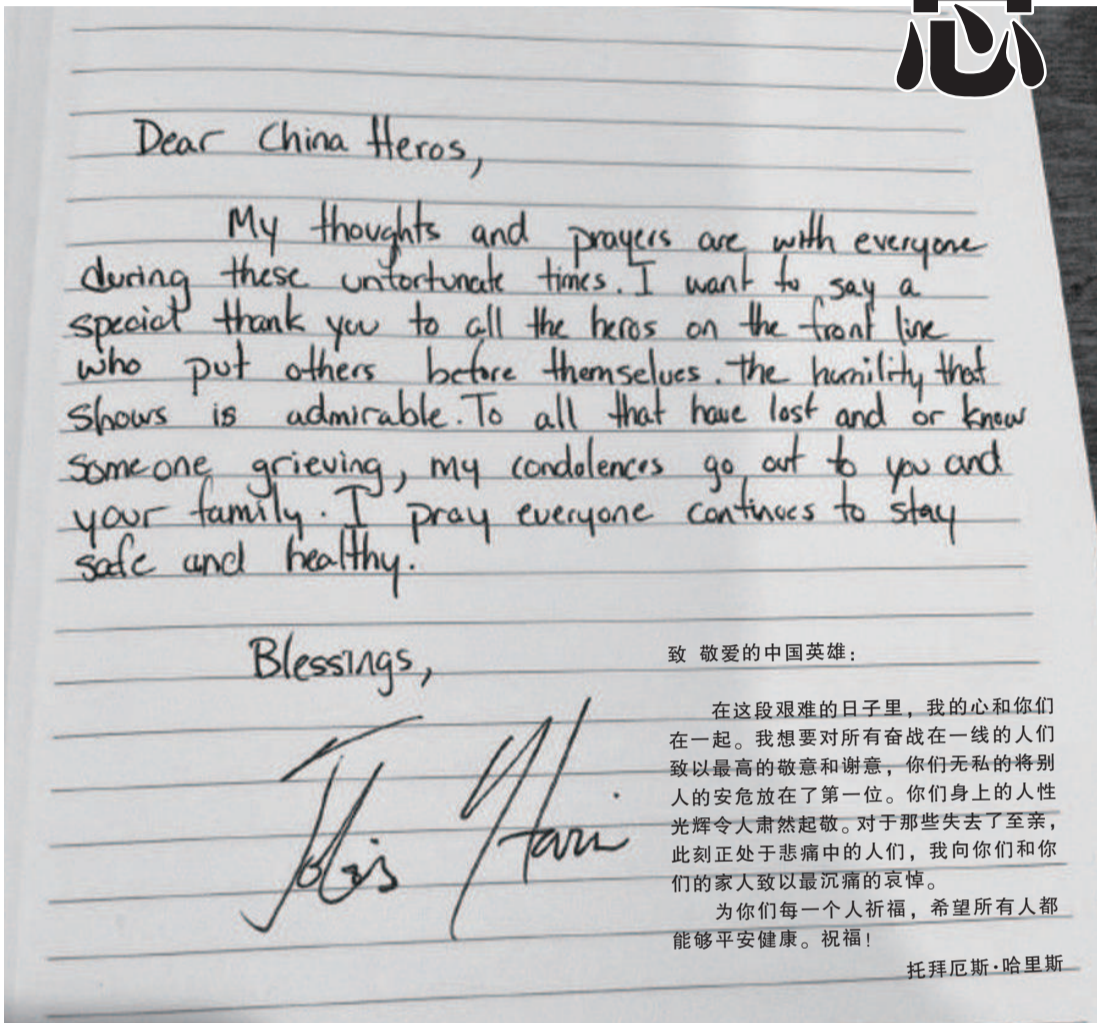 芯
Dear China Heros,
My thoughts and prayers are with everyone
during these unfortunate times. I want to say a
special thank you to all the heros on the front line
who put others before themselves. The humility that
shows is admirable. To all that have lost and or know
someone grieving, my condolences go out to you and
your family. I pray everyone continues to stay
safe and healthy.
Blessings,
致 敬爱的中国英雄：
在这段艰难的日子里，我的心和你们
在一起。我想要对所有奋战在一线的人们
致以最高的敬意和谢意，你们无私的将别
人的安危放在了第一位。你们身上的人性
光辉令人肃然起敬。对于那些失去了至亲，
此刻正处于悲痛中的人们，我向你们和你
们的家人致以最沉痛的哀悼。
为你们每一个人祈福，希望所有人都
能够平安健康。祝福！
托拜厄斯·哈里斯